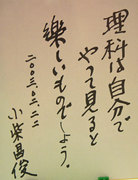 理科は自分で
やって見ると
楽しいものでしょう。
二〇〇三、〇二、二二
小柴昌俊